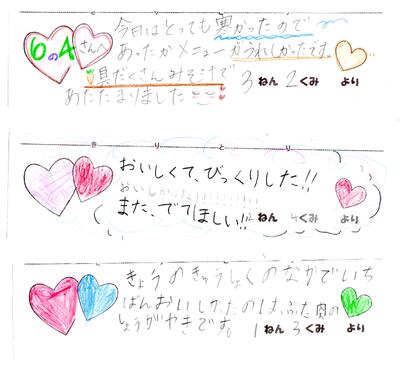 6の4さんへ
今日はとっても寒かったので
あったかメニューがうれしかったです。
具だくさんみそ汁で
あたたまりました
3ねん 2くみ より
きりとり
おいしくて、びっくりした!!
おいしかった!!!!!!!!!
また、でてほしい!!
ねん 4くみ より
きりとり
きょうのきゅうしょくのなかでいち
ばんおいしかったのは、ぶた肉の
しょうがやきです。
1ねん 3くみ より